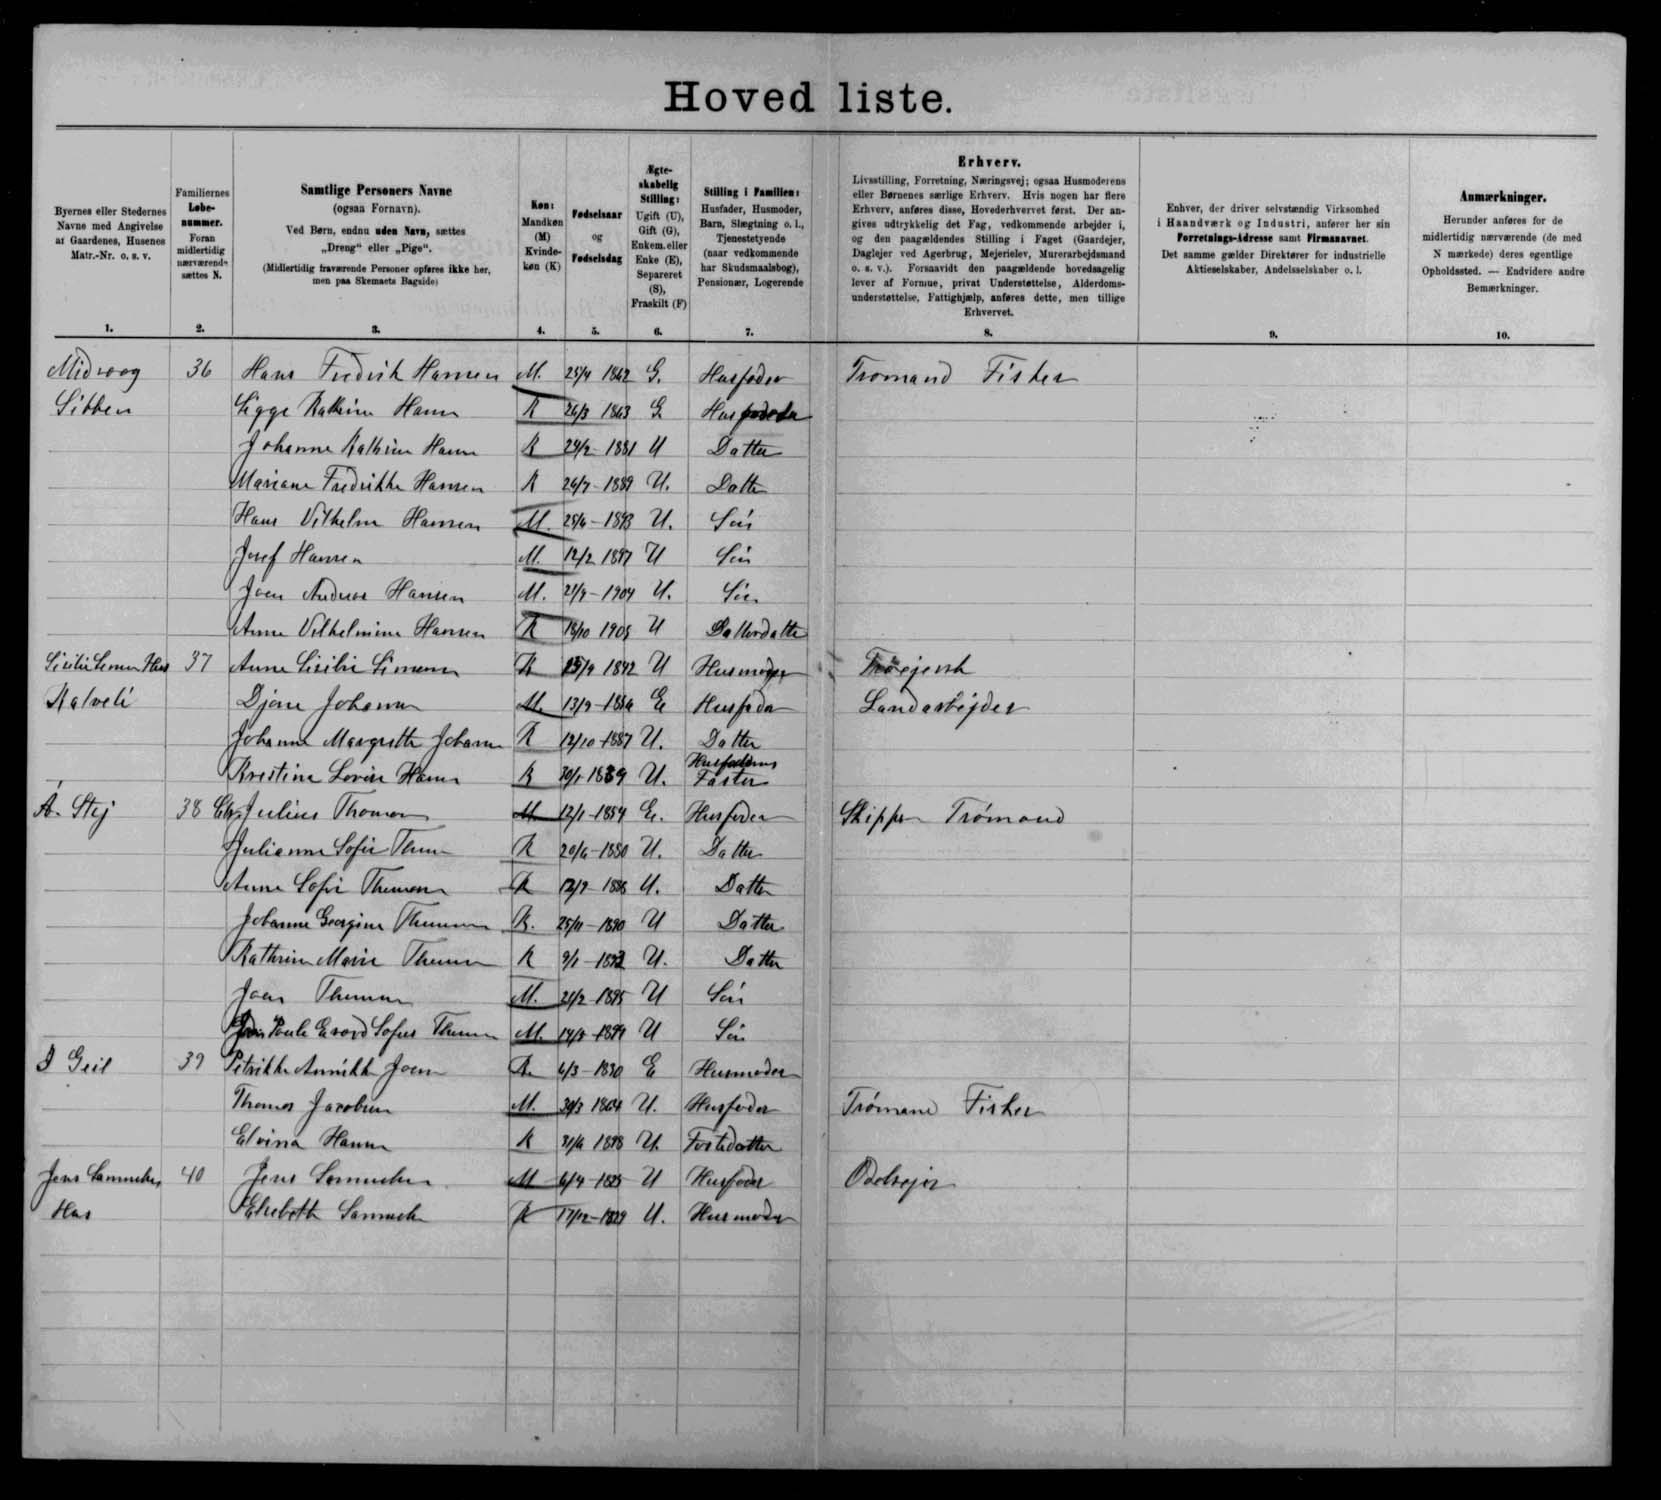 Hoved liste.
Byernes eller Stedernes
Navne med Angivelse
af Gaardenes, Husenes
Matr.-Nr. o. s. v.
1.
Familiernes
Løbe-
nummer.
Foran
midlertidig
nærværende
sættes N.
2.
Samtlige Personers Navne
(ogsaa Fornavn).
Ved Børn, endnu uden Navn, sættes
„Dreng“ eller „Pige“.
(Midlertidig fraværende Personer opføres ikke her,
men paa Skemaets Bagside)
3.
Køn:
Mandkøn
(M)
Kvinde-
køn (K)
4.
Fødselsaar
og
Fødselsdag
5.
Ægte-
skabelig
Stilling:
Ugift (U),
Gift (G),
Enkem. eller
Enke (E),
Separeret
(S),
Fraskilt (F)
6.
Stilling i Familien:
Husfader, Husmoder,
Barn, Slægtning o. l.,
Tjenestetyende
(naar vedkommende
har Skudsmaalsbog),
Pensionær, Logerende
7.
Erhverv.
Livsstilling, Forretning, Næringsvej; ogsaa Husmoderens
eller Børnenes særlige Erhverv. Hvis nogen har flere
Erhverv, anføres disse, Hovederhvervet først. Der an-
gives udtrykkelig det Fag, vedkommende arbejder i,
og den paagældendes Stilling i Faget (Gaardejer,
Daglejer ved Agerbrug, Mejerielev, Murerarbejdsmand
o. s. v.). Forsaavidt den paagældende hovedsagelig
lever af Formue, privat Understøttelse, Alderdoms-
understøttelse, Fattighjælp, anføres dette, men tillige
Erhvervet.
8.
Enhver, der driver selvstændig Virksomhed
i Haandværk og Industri, anfører her sin
Forretnings-Adresse samt Firmanavnet.
Det samme gælder Direktører for industrielle
Aktieselskaber, Andelsselskaber o. l.
9.
Anmærkninger.
Herunder anføres for de
midlertidig nærværende (de med
N mærkede) deres egentlige
Opholdssted. — Endvidere andre
Bemærkninger.
10.
Midvaag 36 Hans Fredrik Hansen M. 25/4 1862 G. Husfader Tromand Fisker
Sigga Kathrine Hansen K 26/3 1863 G
Johanne Kathrine Hansen K 29/2 1881 U Datter
Mariane Fredrikke Hansen K 26/7 - 1889 U. Datter
Hans Vilhelm Hansen M. 25/6 - 1893 U. Sön
Josef Hansen M. 12/2 1897 U Sön
Joen Andreas Hansen M. 21/9 - 1904 U. Sön
Anne Vilhelmine Hansen K 18/10 1905 U Datterdatter
37 Anne Sisilie Simonsen K /9 1842 U Husmoder
Kalveli Johansen M. 13/9 - 1856 E Husfader Landarbejder
Johanne Margrethe Johansen K 12/10 - 1887 U. Datter
Kristine Lovise Hansen K 30/1 - U. Husfaderens Faster
Á. Stej 38 Julius Thomsen M. 12/1 - 1854 E. Husfader Skipper Trømand
Julianne Sofie K 20/6 - 1880 U. Datter
Anne Sofie K 12/9 - 1888 U. Datter
Johanne Georgine K. 25/11 - 1890 U Datter
Kathrine Marie K 9/1 - 1893 U. Datter
Joen M. 21/2 - 1895 U Sön
Poule Sofus M. 14/3 - 1899 U Sön
39 Petrikke Annikke Joensen K. 6/3 - 1830 E Husmoder
Thomas Jacobsen M. 30/3 1864 U. Husfader Trømand Fisker
Elvina Hansen K 31/6 1898 U. Fosterdatter
Jens Samuelsens 40 Jens Samuelsen M 6/4 - 1825 U Husfader Odelsejer
Hus Elsebeth Samuelsen K 17/12 - 1829 U. Husmoder